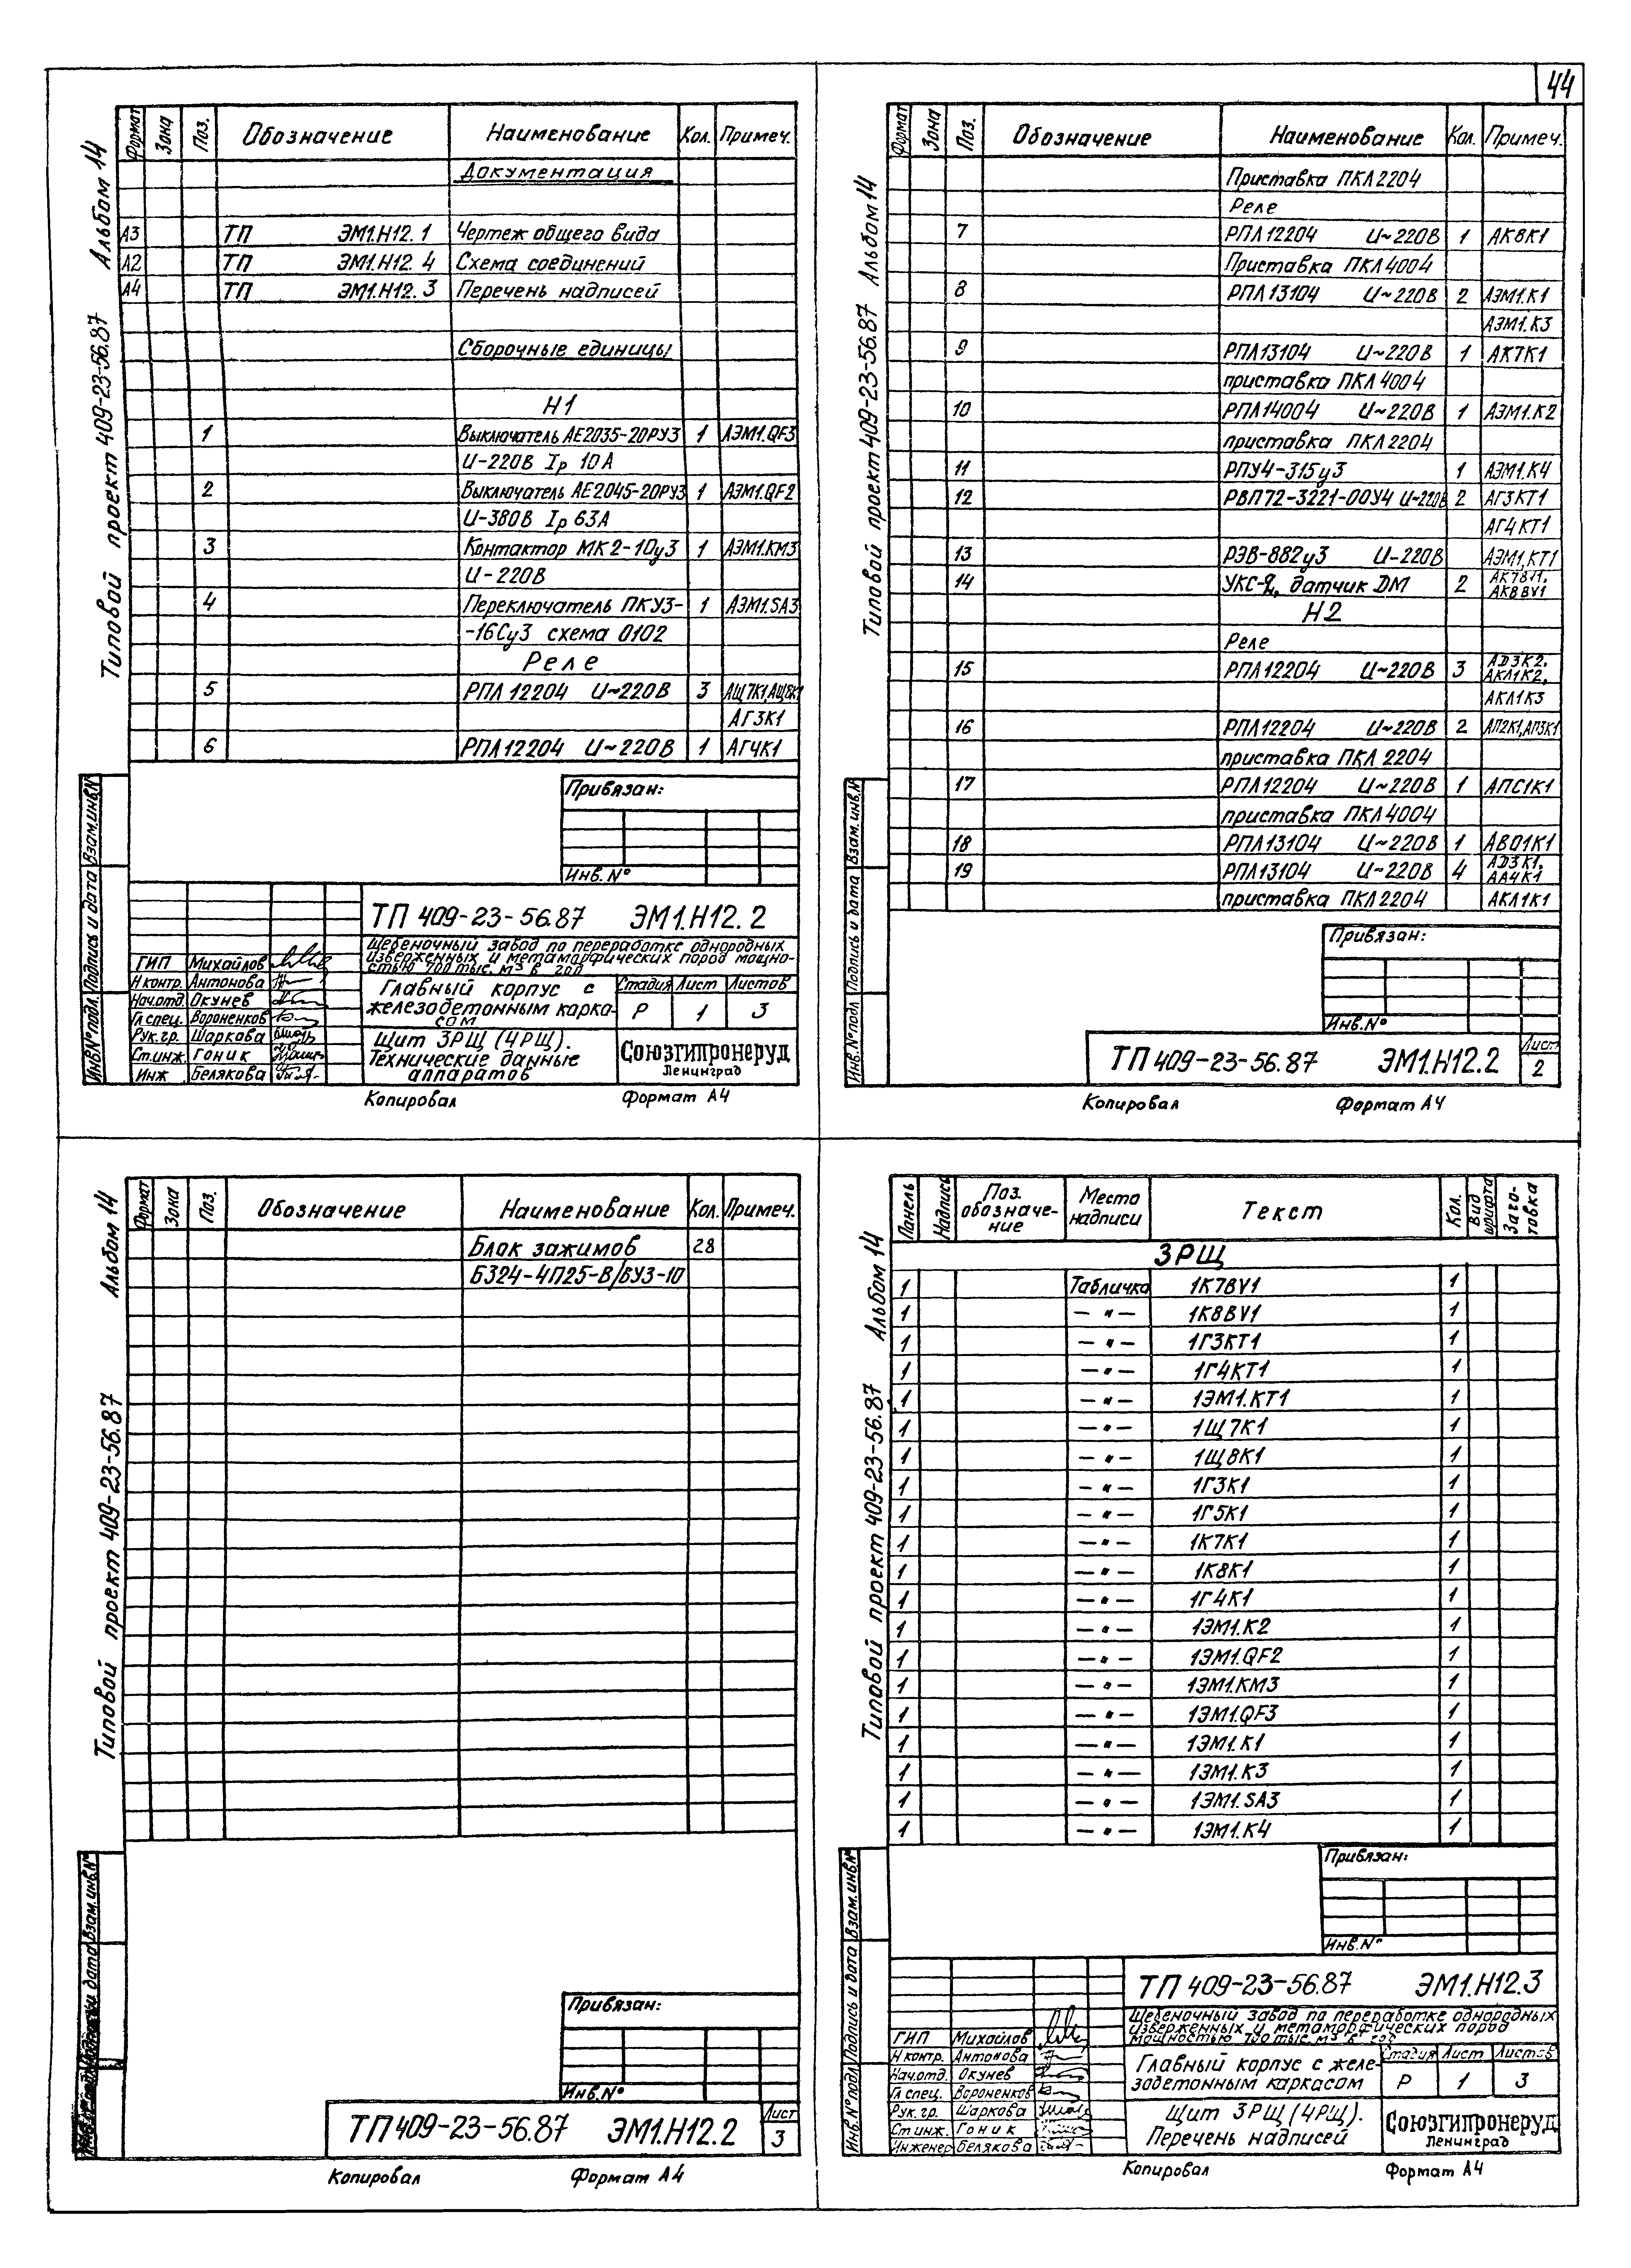 44
Альбом 14
Типовой проект 409-23-56.87
Формат Зона Поз. Обозначение Наименование Кол. Примеч.
Документация
А3 ТП ЭМ1.Н12.1 Чертеж общего вида
А2 ТП ЭМ1.Н12.4 Схема соединений
А4 ТП ЭМ1.Н12.3 Перечень надписей
Сборочные единицы
Н1
1 Выключатель АЕ2035-20РУ3 1 АЭМ1.QF3
U-220В Iр 10А
2 Выключатель АЕ2045-20РУ3 1 АЭМ1.QF2
U-380В Iр 63А
3 Контактор МК2-10у3 1 АЭМ1.КМ3
U-220В
4 Переключатель ПКУ3- 1 АЭМ1.SA3
-16Су3 схема 0102
Реле
5 РПЛ 12204 U~220В 3 АЩ7К1,АЩ8К1
АГ3К1
6 РПЛ12204 U~220В 1 АГ4К1
Привязан:
Инв.№
Взам.инв.№
Подпись и дата
Инв.№ подл.
ТП 409-23-56.87 ЭМ1.Н12.2
Щебеночный завод по переработке однородных
изверженных и метаморфических пород мощно-
стью 700 тыс. м3 в год
ГИП Михайлов
Н контр. Антонова
Нач.отд. Окунев
Гл спец. Вороненков
Рук.гр. Шаркова
Ст.инж. Гоник
Инж Белякова
Главный корпус с
железобетонным карка-
сом
Стадия Лист Листов
Р 1 3
Щит 3РЩ (4РЩ).
Технические данные
аппаратов
Союзгипронеруд
Ленинград
Копировал Формат А4
Альбом 14
Типовой проект 409-23-56.87
Формат Зона Поз. Обозначение Наименование Кол. Примеч.
Приставка ПКЛ2204
Реле
7 РПЛ12204 U~220В 1 АК8К1
Приставка ПКЛ4004
8 РПЛ13104 U~220В 2 АЭМ1.К1
АЭМ1.К3
9 РПЛ13104 U~220В 1 АК7К1
приставка ПКЛ4004
10 РПЛ14004 U~220В 1 АЭМ1.К2
приставка ПКЛ2204
11 РПУ4-315у3 1 АЭМ1.К4
12 РВП72-3221-00У4 U~220В 2 АГ3КТ1
АГ4КТ1
13 РЭВ-882у3 U-220В АЭМ1,КТ1
14 УКС-2, датчик DM 2 АК7BV1,
АК8BV1
Н2
Реле
15 РПЛ12204 U~220В 3 АД3К2,
АКЛ1К2,
АКЛ1К3
16 РПЛ12204 U~220В 2 АП2К1,АП3К1
приставка ПКЛ 2204
17 РПЛ12204 U~220В 1 АПС1К1
приставка ПКЛ4004
18 РПЛ13104 U~220В 1 АВО1К1
19 РПЛ13104 U~220В 4 АД3К1,
АА4К1
приставка ПКЛ2204 АКЛ1К1
Привязан:
Инв.№
Взам.инв.№
Подпись и дата
Инв.№ подл
ТП 409-23-56.87 ЭМ1.Н12.2
Лист
2
Копировал Формат А4
Альбом 14
Типовой проект 409-23-56.87
Формат Зона Поз. Обозначение Наименование Кол. Примеч.
Блок зажимов 28
Б324-4П25-В/ВУ3-10
Привязан:
Инв.№
Взам.инв.№
ТП 409-23-56.87 ЭМ1.Н12.2
Лист
3
Копировал Формат А4
Альбом 14
Типовой проект 409-23-56.87
Панель Надпись Поз. обозначе-ние Место надписи Текст Кол. Вид шрифта Заго-товка
3РЩ
1 Табличка 1К7BV1 1
1 — " — 1К8BV1 1
1 — " — 1Г3КТ1 1
1 — " — 1Г4КТ1 1
1 — " — 1ЭМ1.КТ1 1
1 — " — 1Щ7К1 1
1 — " — 1Щ8К1 1
1 — " — 1Г3К1 1
1 — " — 1Г5К1 1
1 — " — 1К7К1 1
1 — " — 1К8К1 1
1 — " — 1Г4К1 1
1 — " — 1ЭМ1.К2 1
1 — " — 1ЭМ1.QF2 1
1 — " — 1ЭМ1.КМ3 1
1 — " — 1ЭМ1.QF3 1
1 — " — 1ЭМ1.К1 1
1 — " — 1ЭМ1.К3 1
1 — " — 1ЭМ1.SA3 1
1 — " — 1ЭМ1.К4 1
Привязан:
Инв.№
Взам.инв.№
Подпись и дата
Инв.№ подл
ТП 409-23-56.87 ЭМ1.Н12.3
Щебеночный завод по переработке однородных
изверженных и метаморфических пород
мощностью 700 тыс. м3 в год
ГИП Михайлов
Н контр. Антонова
Нач.отд. Окунев
Гл спец. Вороненков
Рук.гр. Шаркова
Ст инж. Гоник
Инженер Белякова
Главный корпус с желе-
зобетонным каркасом
Стадия Лист Листов
Р 1 3
Щит 3РЩ (4РЩ).
Перечень надписей
Союзгипронеруд
Ленинград
Копировал Формат А4